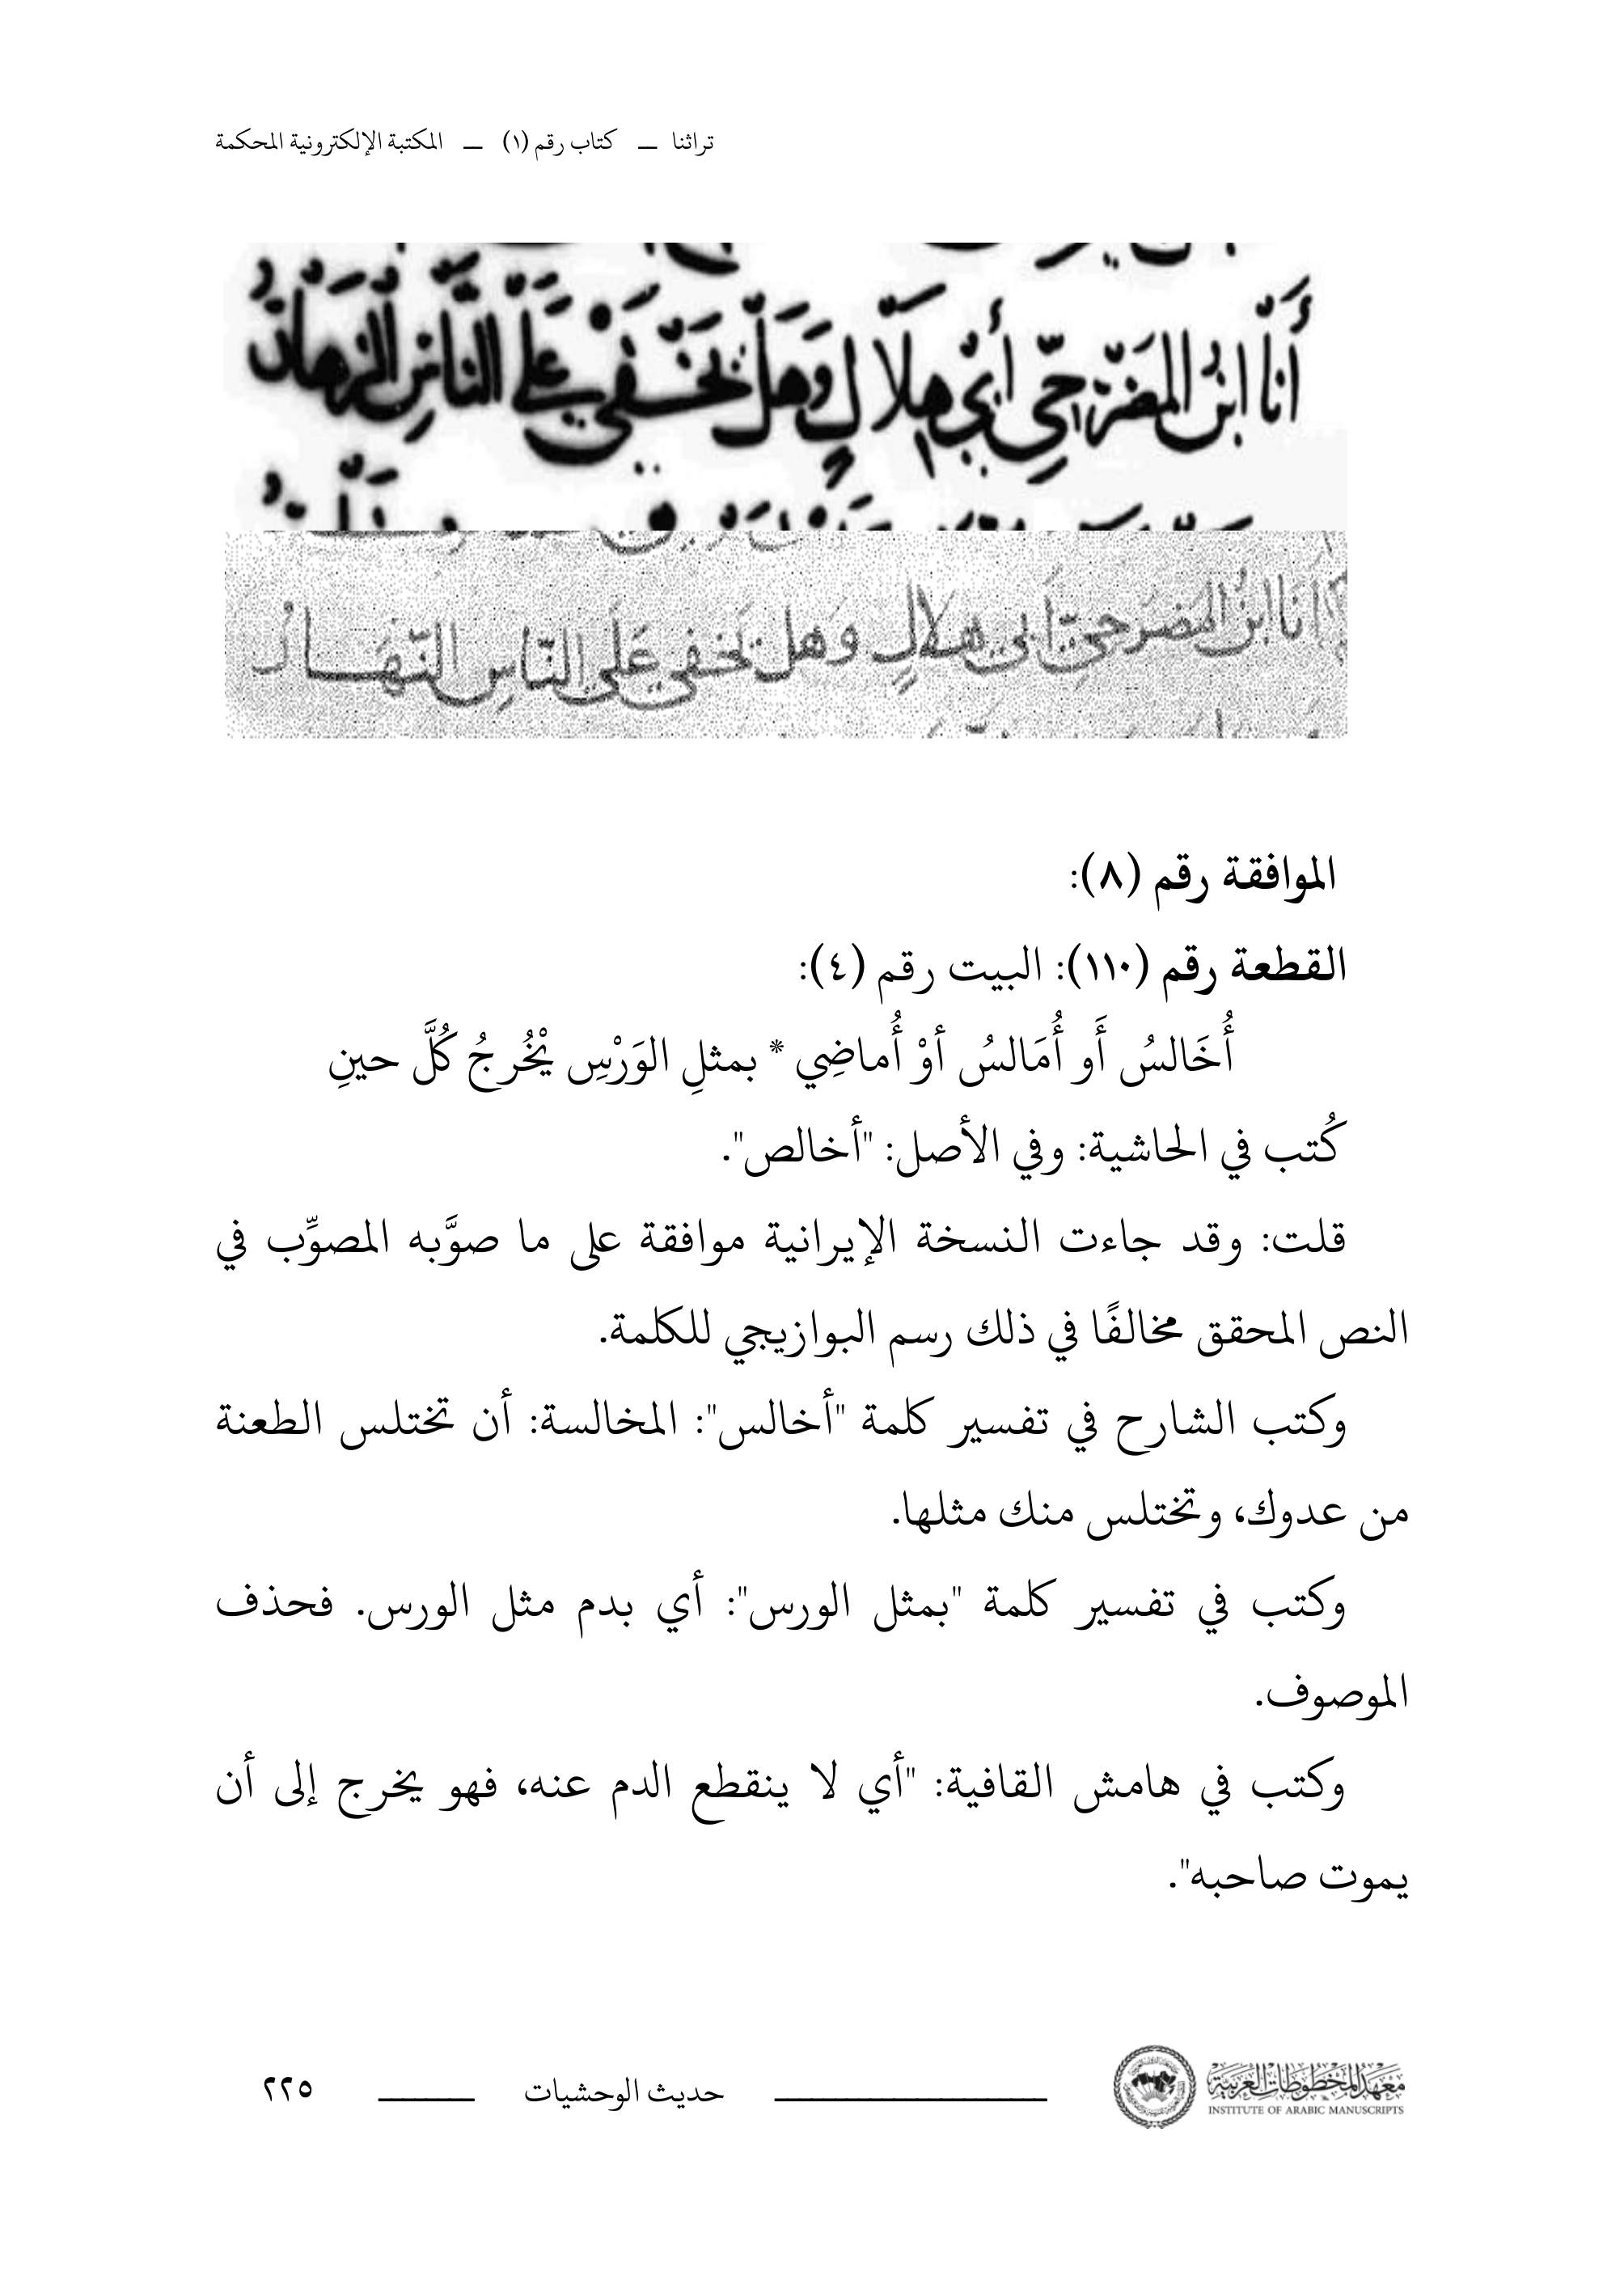 تراثنا — كتاب رقم (١) — المكتبة الإلكترونية المحكمة
أَنَا ابنُ المَضْرَحِيِّ أَبِي هِلَالٍ وَهَلْ يَخْفَى عَلَى النَّاسِ النَّهَارُ
اَنَا ابنُ المَضرَحِيِّ اَبِى هلالٍ وَهَل يَخفى عَلَى النّاسِ النَّهَارُ
الموافقة رقم (٨):
القطعة رقم (١١٠): البيت رقم (٤):
أُخَالسُ أَو أُمَالسُ أوْ أُماضِي * بمثلِ الوَرْسِ يْخُرجُ كُلَّ حينِ
كُتب في الحاشية: وفي الأصل: "أخالص".
قلت: وقد جاءت النسخة الإيرانية موافقة على ما صوَّبه المصوِّب في
النص المحقق مخالفًا في ذلك رسم البوازيجي للكلمة.
وكتب الشارح في تفسير كلمة "أخالس": المخالسة: أن تختلس الطعنة
من عدوك، وتختلس منك مثلها.
وكتب في تفسير كلمة "بمثل الورس": أي بدم مثل الورس. فحذف
الموصوف.
وكتب في هامش القافية: "أي لا ينقطع الدم عنه، فهو يخرج إلى أن
يموت صاحبه".
معهد المخطوطات العربية
INSTITUTE OF ARABIC MANUSCRIPTS
حديث الوحشيات
٢٢٥